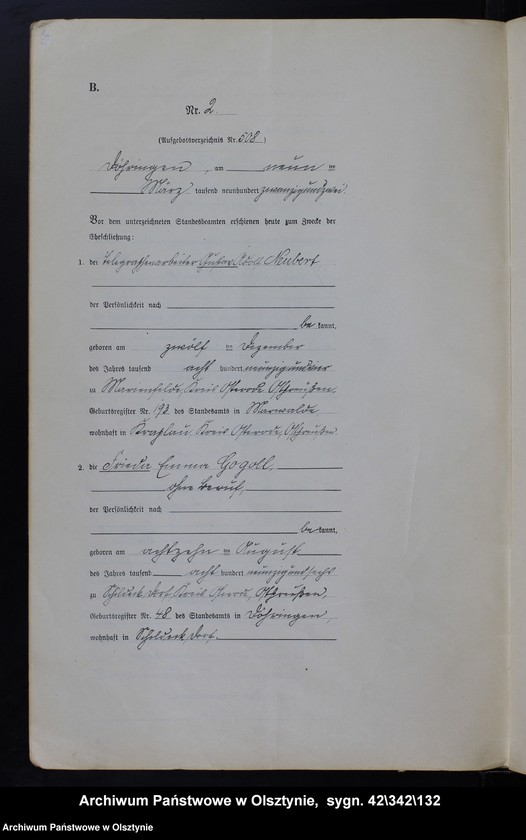 B.
Nr. 2.
(Aufgebotsverzeichnis Nr. 508)
Döhringen, am neun ten
März tausend neunhundert zwanzigundzwei.
Vor dem unterzeichneten Standesbeamten erschienen heute zum Zwecke der
Eheschließung:
1. der Telegraphenarbeiter Gustav Adolf Neubert
der Persönlichkeit nach
be kannt,
geboren am zwölf ten Dezember
des Jahres tausend acht hundert neunzigundvier
zu Marienfelde, Kreis Osterode Ostpreußen,
Geburtsregister Nr. des Standesamts in Marwalde
wohnhaft in Kraplau Kreis Osterode, Ostpreußen.
2. die Frieda Emma Gogoll,
ohne Beruf,
der Persönlichkeit nach
be kannt,
geboren am achtzehn ten August
des Jahres tausend acht hundert neunzigundsechs
zu Schildeck Dorf, Kreis Osterode, Ostpreußen,
Geburtsregister Nr. 48 des Standesamts in Döhringen,
wohnhaft in Schildeck, Dorf.
Archiwum Państwowe w Olsztynie, sygn. 42\342\132
Archiwum Państwowe w Olsztynie